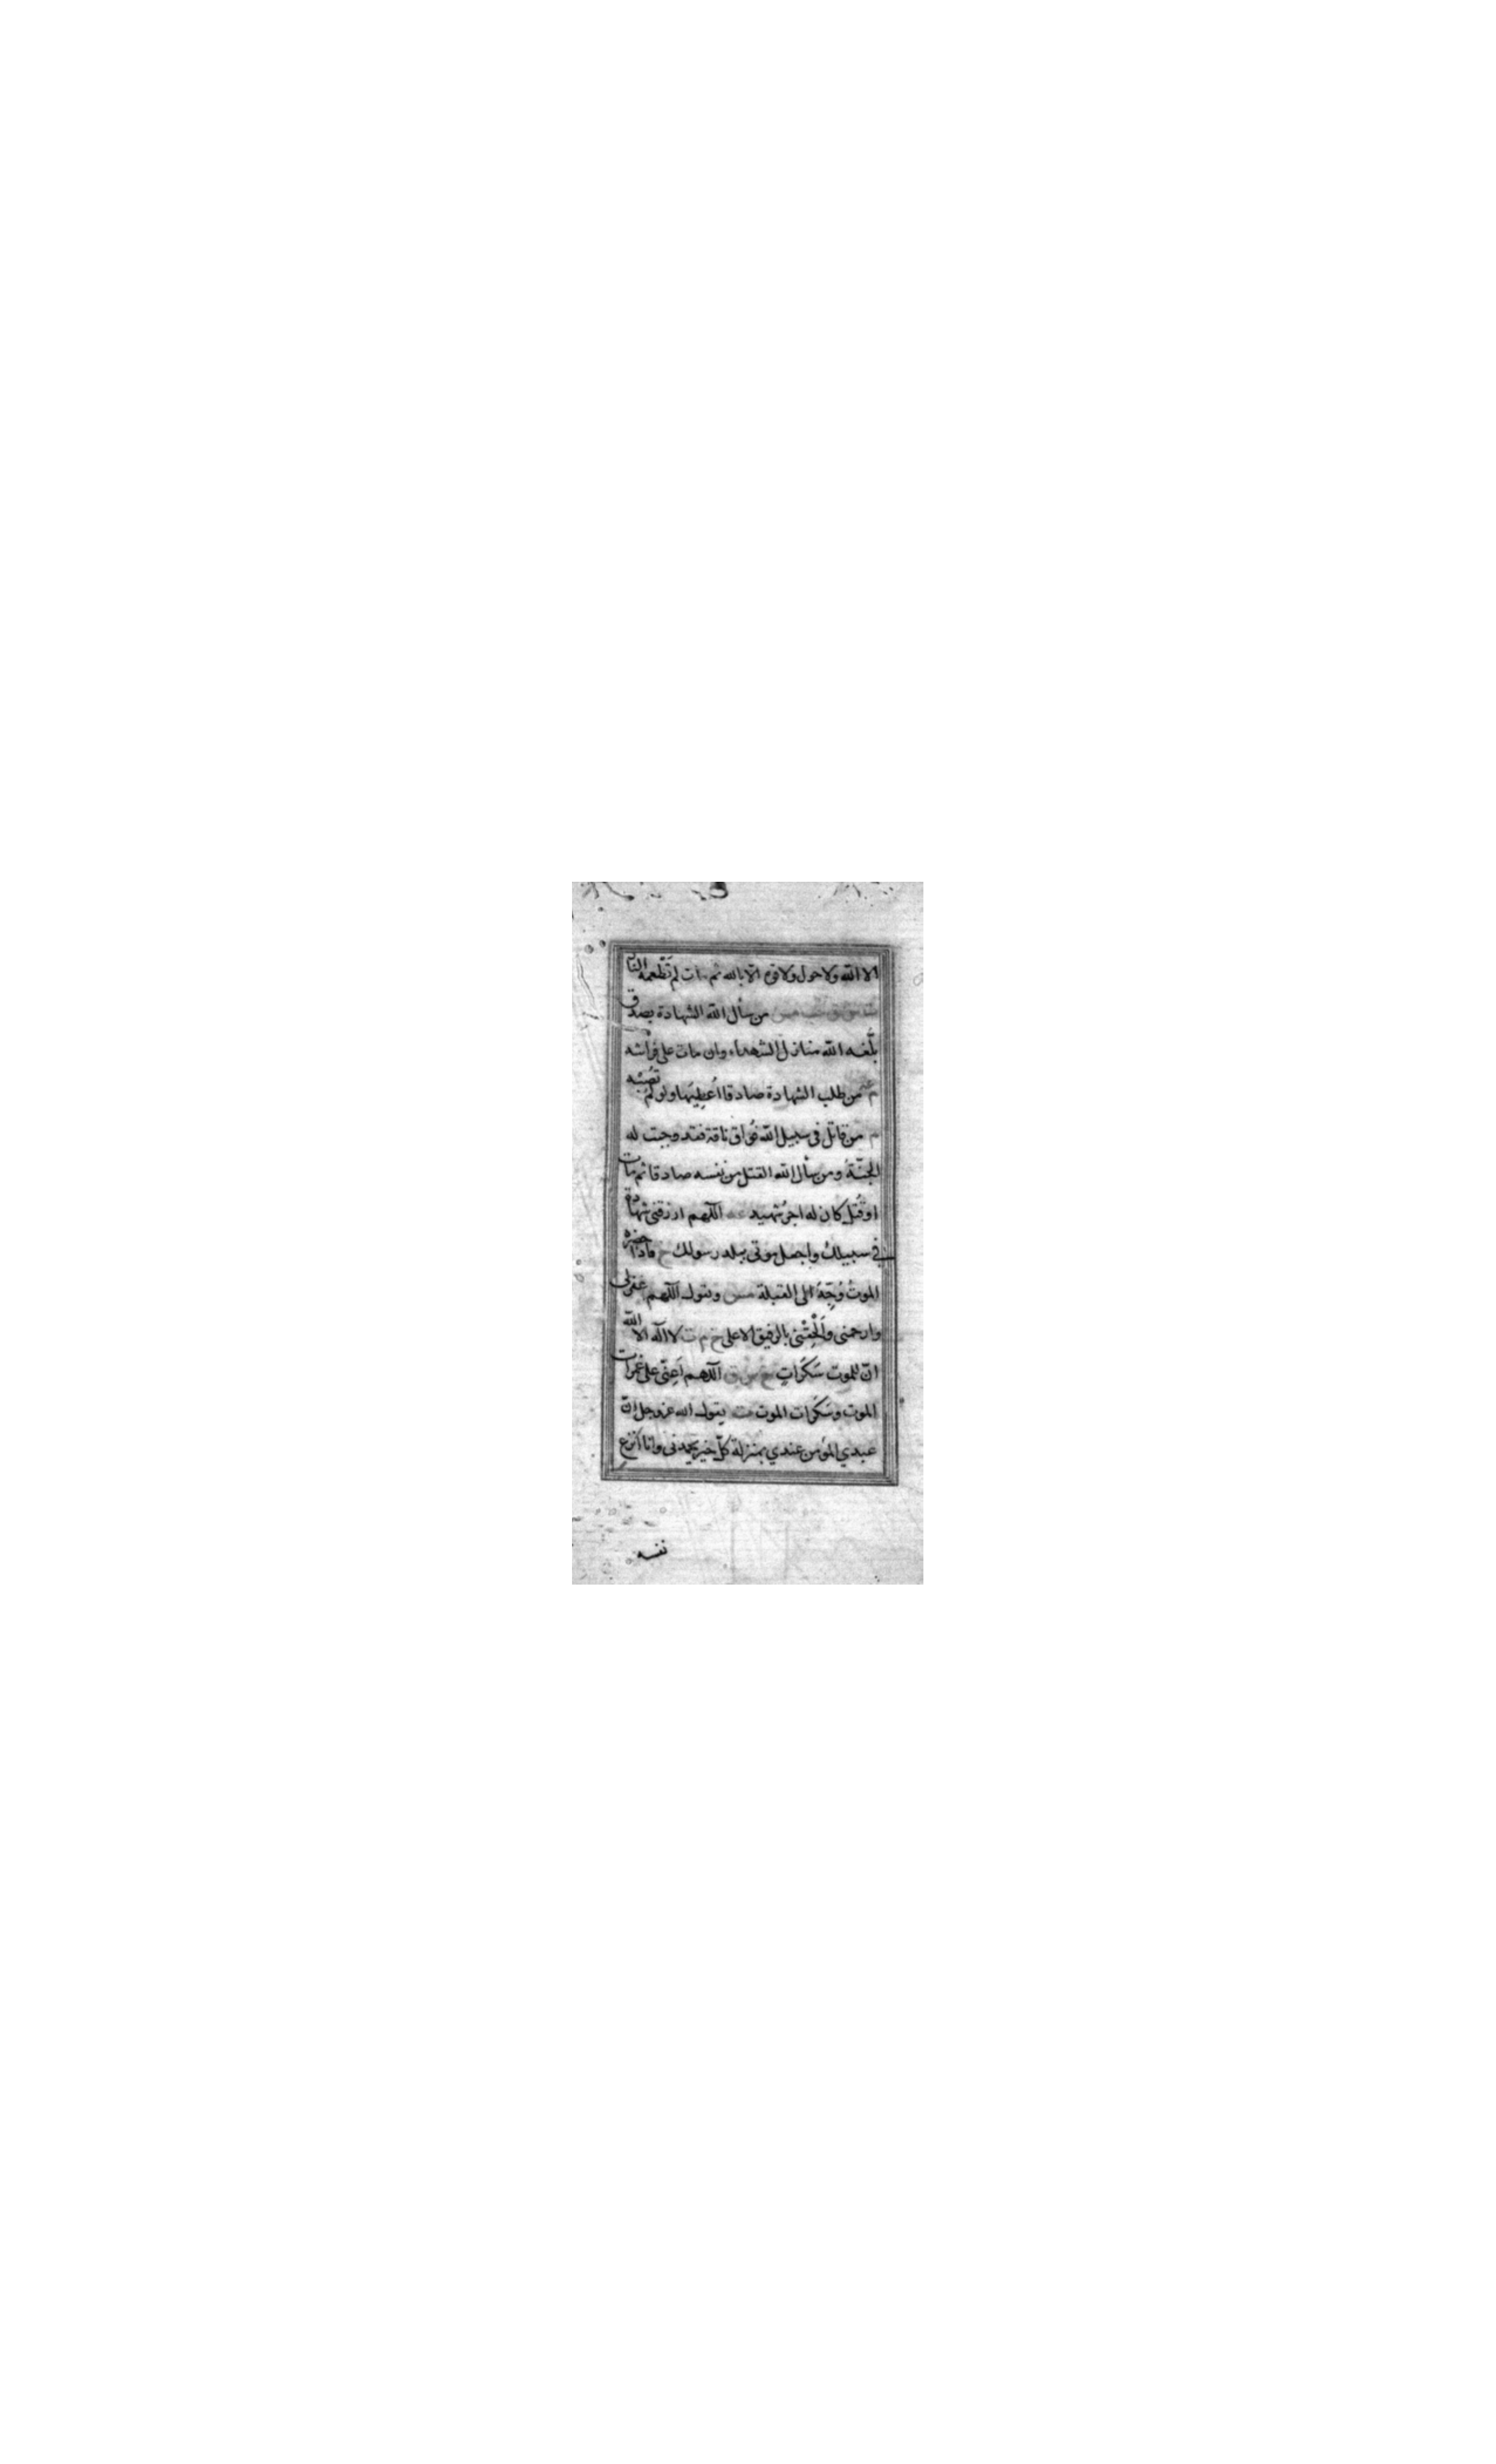 الا الله ولا حول ولا قوة الا بالله ثم مات لم تَطْعمه النار
ت س ق حب مس من سأل الله الشهادة بصدق
بلّغه الله منازل الشهداء وان مات على فراشه
م عه من طلب الشهادة صادقا اُعطِيَها ولو لم تُصِبْه
م من قاتل فى سبيل الله فُواق ناقة فقد وجبت له
الجنّةُ ومن سأل الله القتل من نفسه صادقا ثم مات
او قُتل كان له اجرُ شهيد عه اللّهم ارزقنى شهادة
فى سبيلك واجعل موتى ببلد رسولك خ فاذا حضره
الموتُ وُجِّهَ الى القبلة مس ويقول اللّهم اغفرلى
وارحمنى وَاَلْحِقْنى بالرفيق الاعلى خ م ت لا اله الا الله
انّ للموت سَكَراتٍ خ س ق اللّهم اَعِنّى على غمرات
الموت وسَكَرات الموت ت يقول الله عز وجل انّ
عبدي المؤمن عندي بمنزلة كلّ خير يحمدنى وانا اَنزِع
نفسه